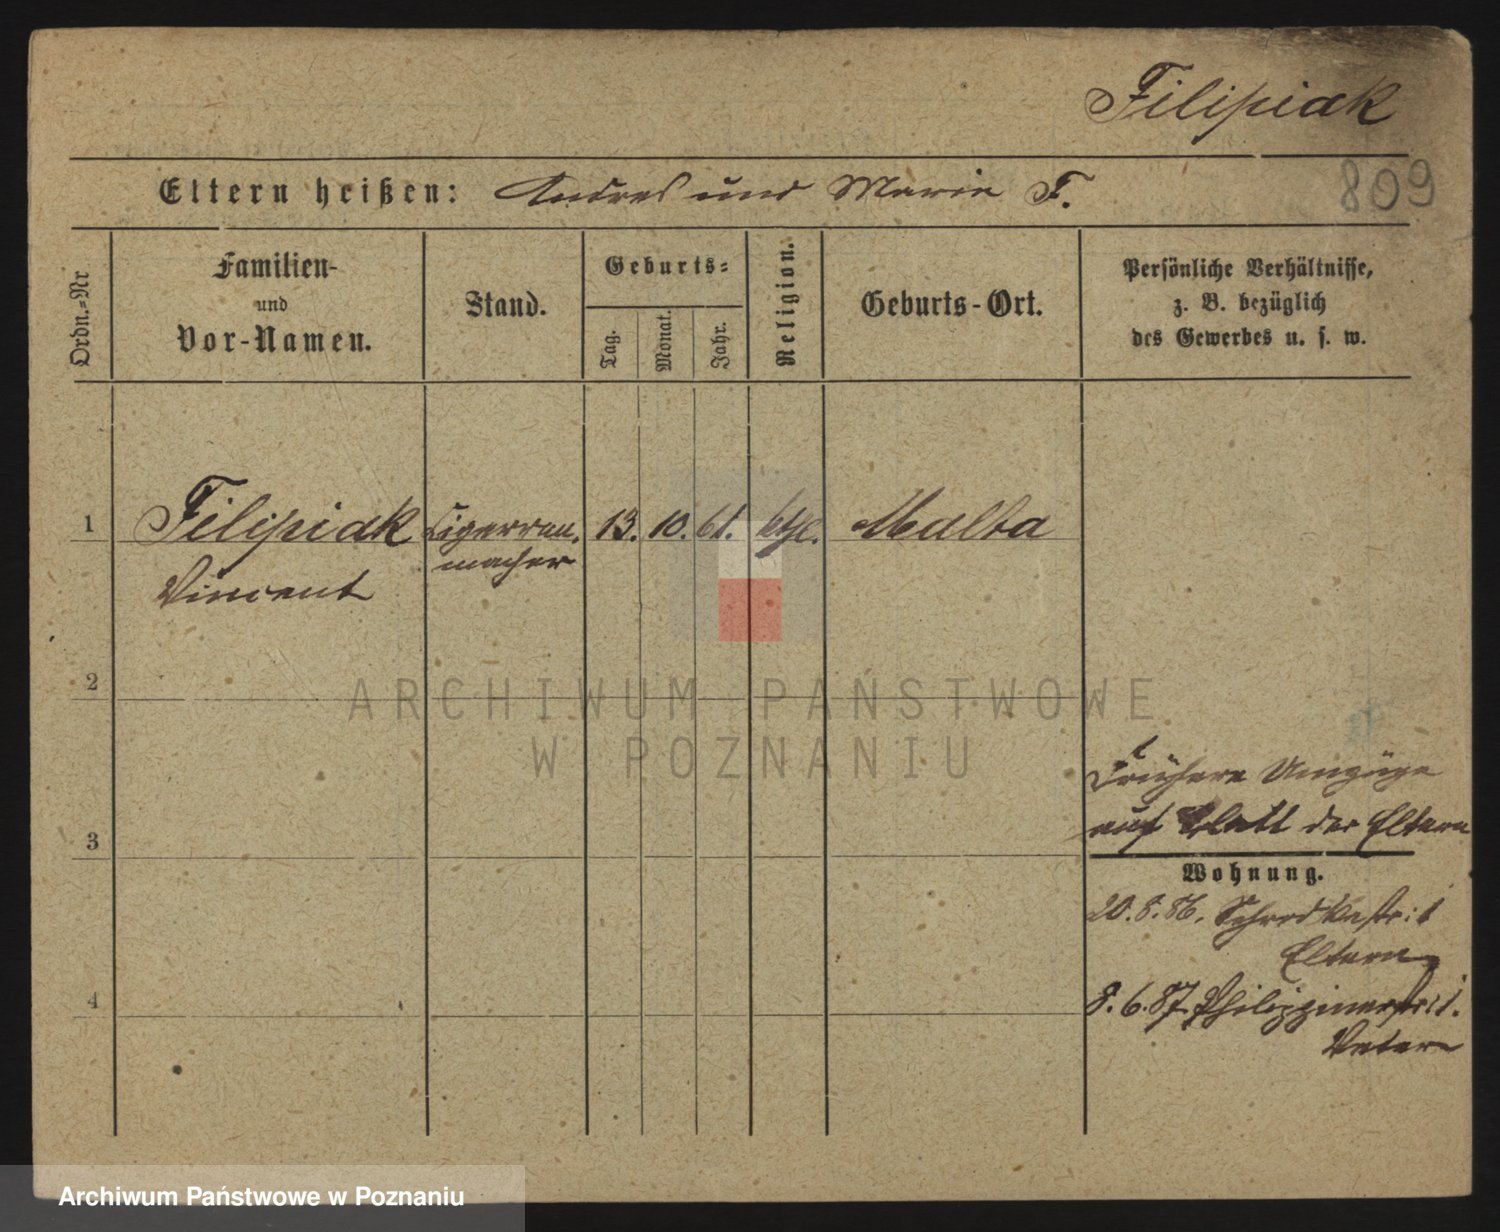 Filipiak
809
Eltern heißen: Andreas und Marie F.
Ordn.-Nr
Familien-
und
Vor-Namen.
Stand.
Geburts-
Tag.
Monat.
Jahr.
Religion.
Geburts-Ort.
Persönliche Verhältnisse,
z. B. bezüglich
des Gewerbes u. s. w.
1 Filipiak Cigarren- 13. 10. 61. kthl. Malta
Vincent macher
2
ARCHIWUM PAŃSTWOWE
W POZNANIU
Frühere Umzüge
3 auf Blatt der Eltern
Wohnung.
20.8.86.
Eltern
4 8.6.87. Philippinerstr. 1.
Vater
Archiwum Państwowe w Poznaniu